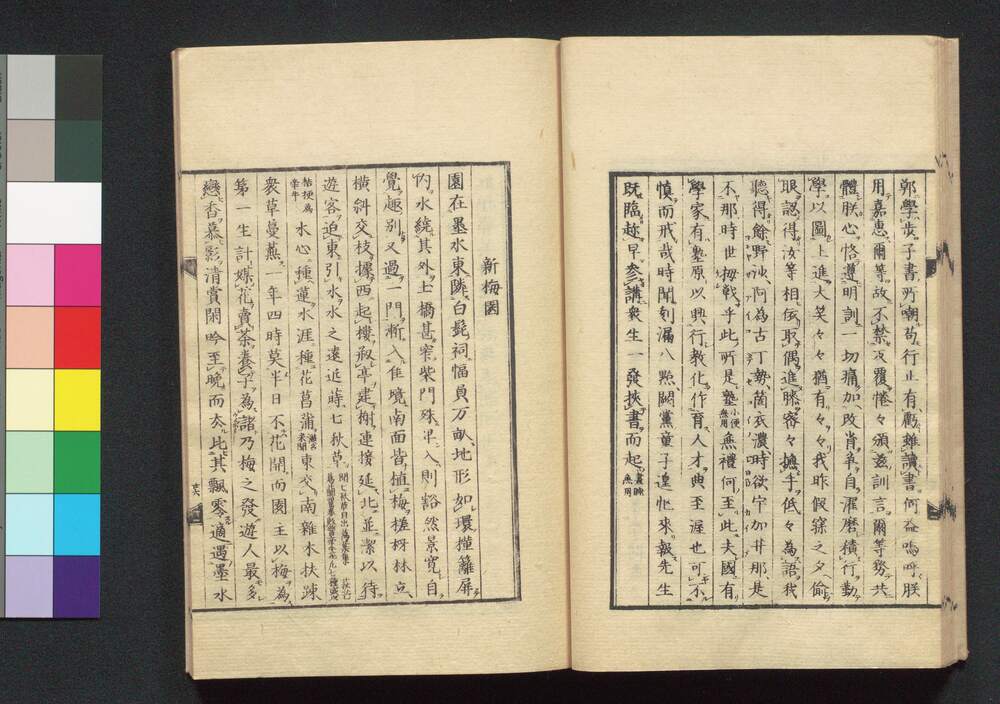 郭學步子書所嘲苟行止有虧雖讀書何益嗚呼朕
用嘉惠爾等故不禁反覆惓々頒茲訓言爾等務共
體朕心恪遵明訓一切痛加改省爭自濯磨積行勤
學以圖上進大笑々々猶有々々我昨假寐之夕偷
眼認得汝等相依取偶進膝密々撫手低々為語我
聽得餘野汝阿為古丁勢箇衣濃時欲牢加井那是
不那時世拇戰乎此所是塾小便無用無禮何至此夫國有
學家有塾原以興行教化作育人才典至渥也可不
慎而戒哉時聞刻漏八點闕黨童子遑忙來報先生
既臨趍早參講衆生一發挾書而起晝睡無用
新梅園
園在墨水東陲白髭祠幅員万畝地形如環槿籬屏
內水繞其外土橋甚窄柴門殊卑入則豁然景寬自
覺趣別又過一門漸入佳境南面皆植梅槎枒林立
橫斜交枝據西起樓叔亭建榭連接延北並潔以待
遊客迫東引水水之遠近蒔七秋草
桔梗為牽牛水心種蓮水涯種花菖蒲東交南雜木扶疎
衆草蔓蕪一年四時莫半日不花開而園王以梅為
第一生計媒花賣茶養子為諸乃梅之發遊人最多
戀香慕影清賞閑吟至晚而太比其飄零適遇墨水